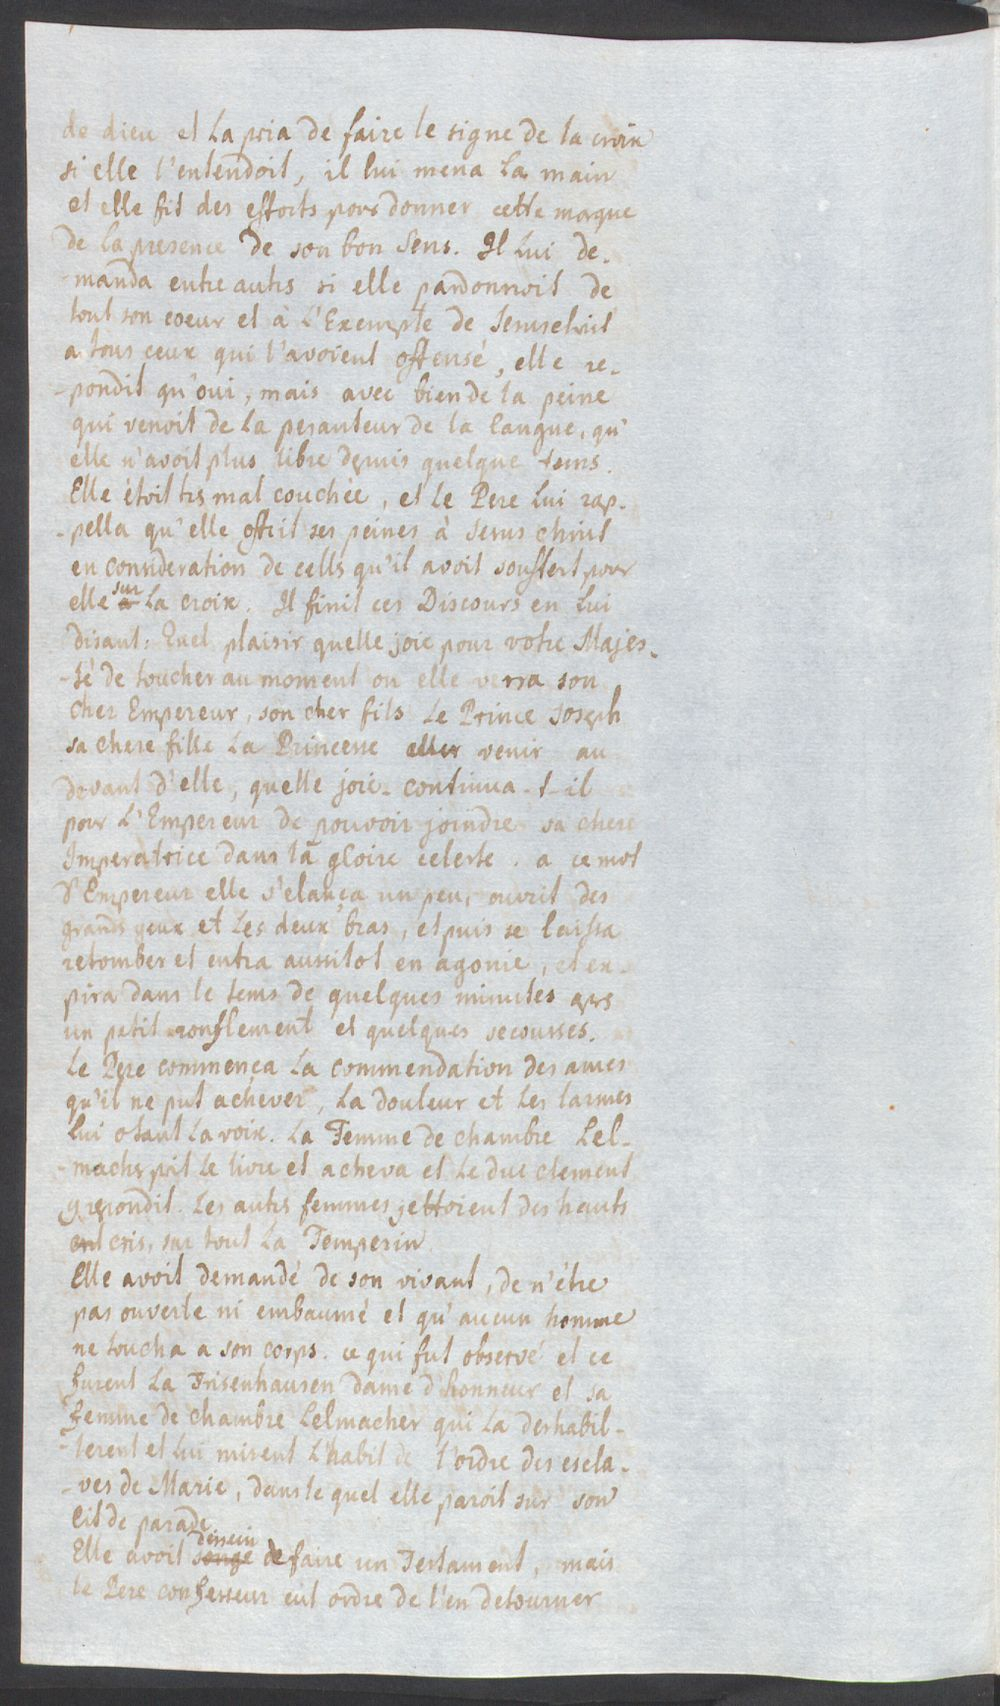 de dieu et La pria de faire le signe de la croix
si elle l'entendoit, il lui mena la main
et elle fit des efforts pour donner cette maque
de la presence de son bon Sens. Il lui de-
-manda entre autrs si elle pardonnoit de
tout son coeur et à L'Exemple de Jesuschrist
a tous ceux qui l'avoient offensé, elle re-
-pondit qu'oui, mais avec bien de la peine
qui venoit de la pesanteur de la langue, qu'
elle n'avoit plus libre depuis quelque tems.
Elle étoit trs mal couchée, et le Pere Lui rap-
-pella qu'elle offrit ses peines à Jesus christ
en consideration de cells qu'il avoit souffert pour
elle sur La croix. Il finit ces Discours en Lui
disant: Quel plaisir quelle joie pour votre Majes-
-té de toucher au moment ou elle verra son
cher Empereur, son cher fils Le Prince Joseph
sa chere fille La Princesse aller venir au
devant d'elle, quelle joie continua-t-il
pour L'Empereur de pouvoir joindre sa chere
Imperatrice dans la gloire celeste. a ce mot
d'Empereur elle s'elança un peu, ouvrit des
grands yeux et Les deux bras, et puis se laissa
retomber et entra aussitot en agonie, et ex-
pira dans le tems de quelques minutes aprs
un petit ronflement et quelques secousses.
Le Pere commença La commendation des ames
qu'il ne put achever, La douleur et Les larmes
Lui otant La voix. La Femme de chambre Lel-
-machr prit Le livre et acheva et Le duc clement
y repondit. Les autrs femmes jettoient des hauts
cris, sur tout La Temperin
Elle avoit demandé de son vivant, de n'être
pas ouverte ni embaumé et qu'aucun homme
ne toucha a son corps. ce qui fut observé et ce
furent La Frisenhausen dame d'honneur et sa
femme de chambre Lelmacher qui La deshabil-
-lerent et Lui mirent L'habit de l'ordre des escla-
-ves de Marie, dans le quel elle paroit sur son
Lit de parade.
Elle avoit dessein de faire un Testament, mais
le Pere confesseur eut ordre de l'en detourner